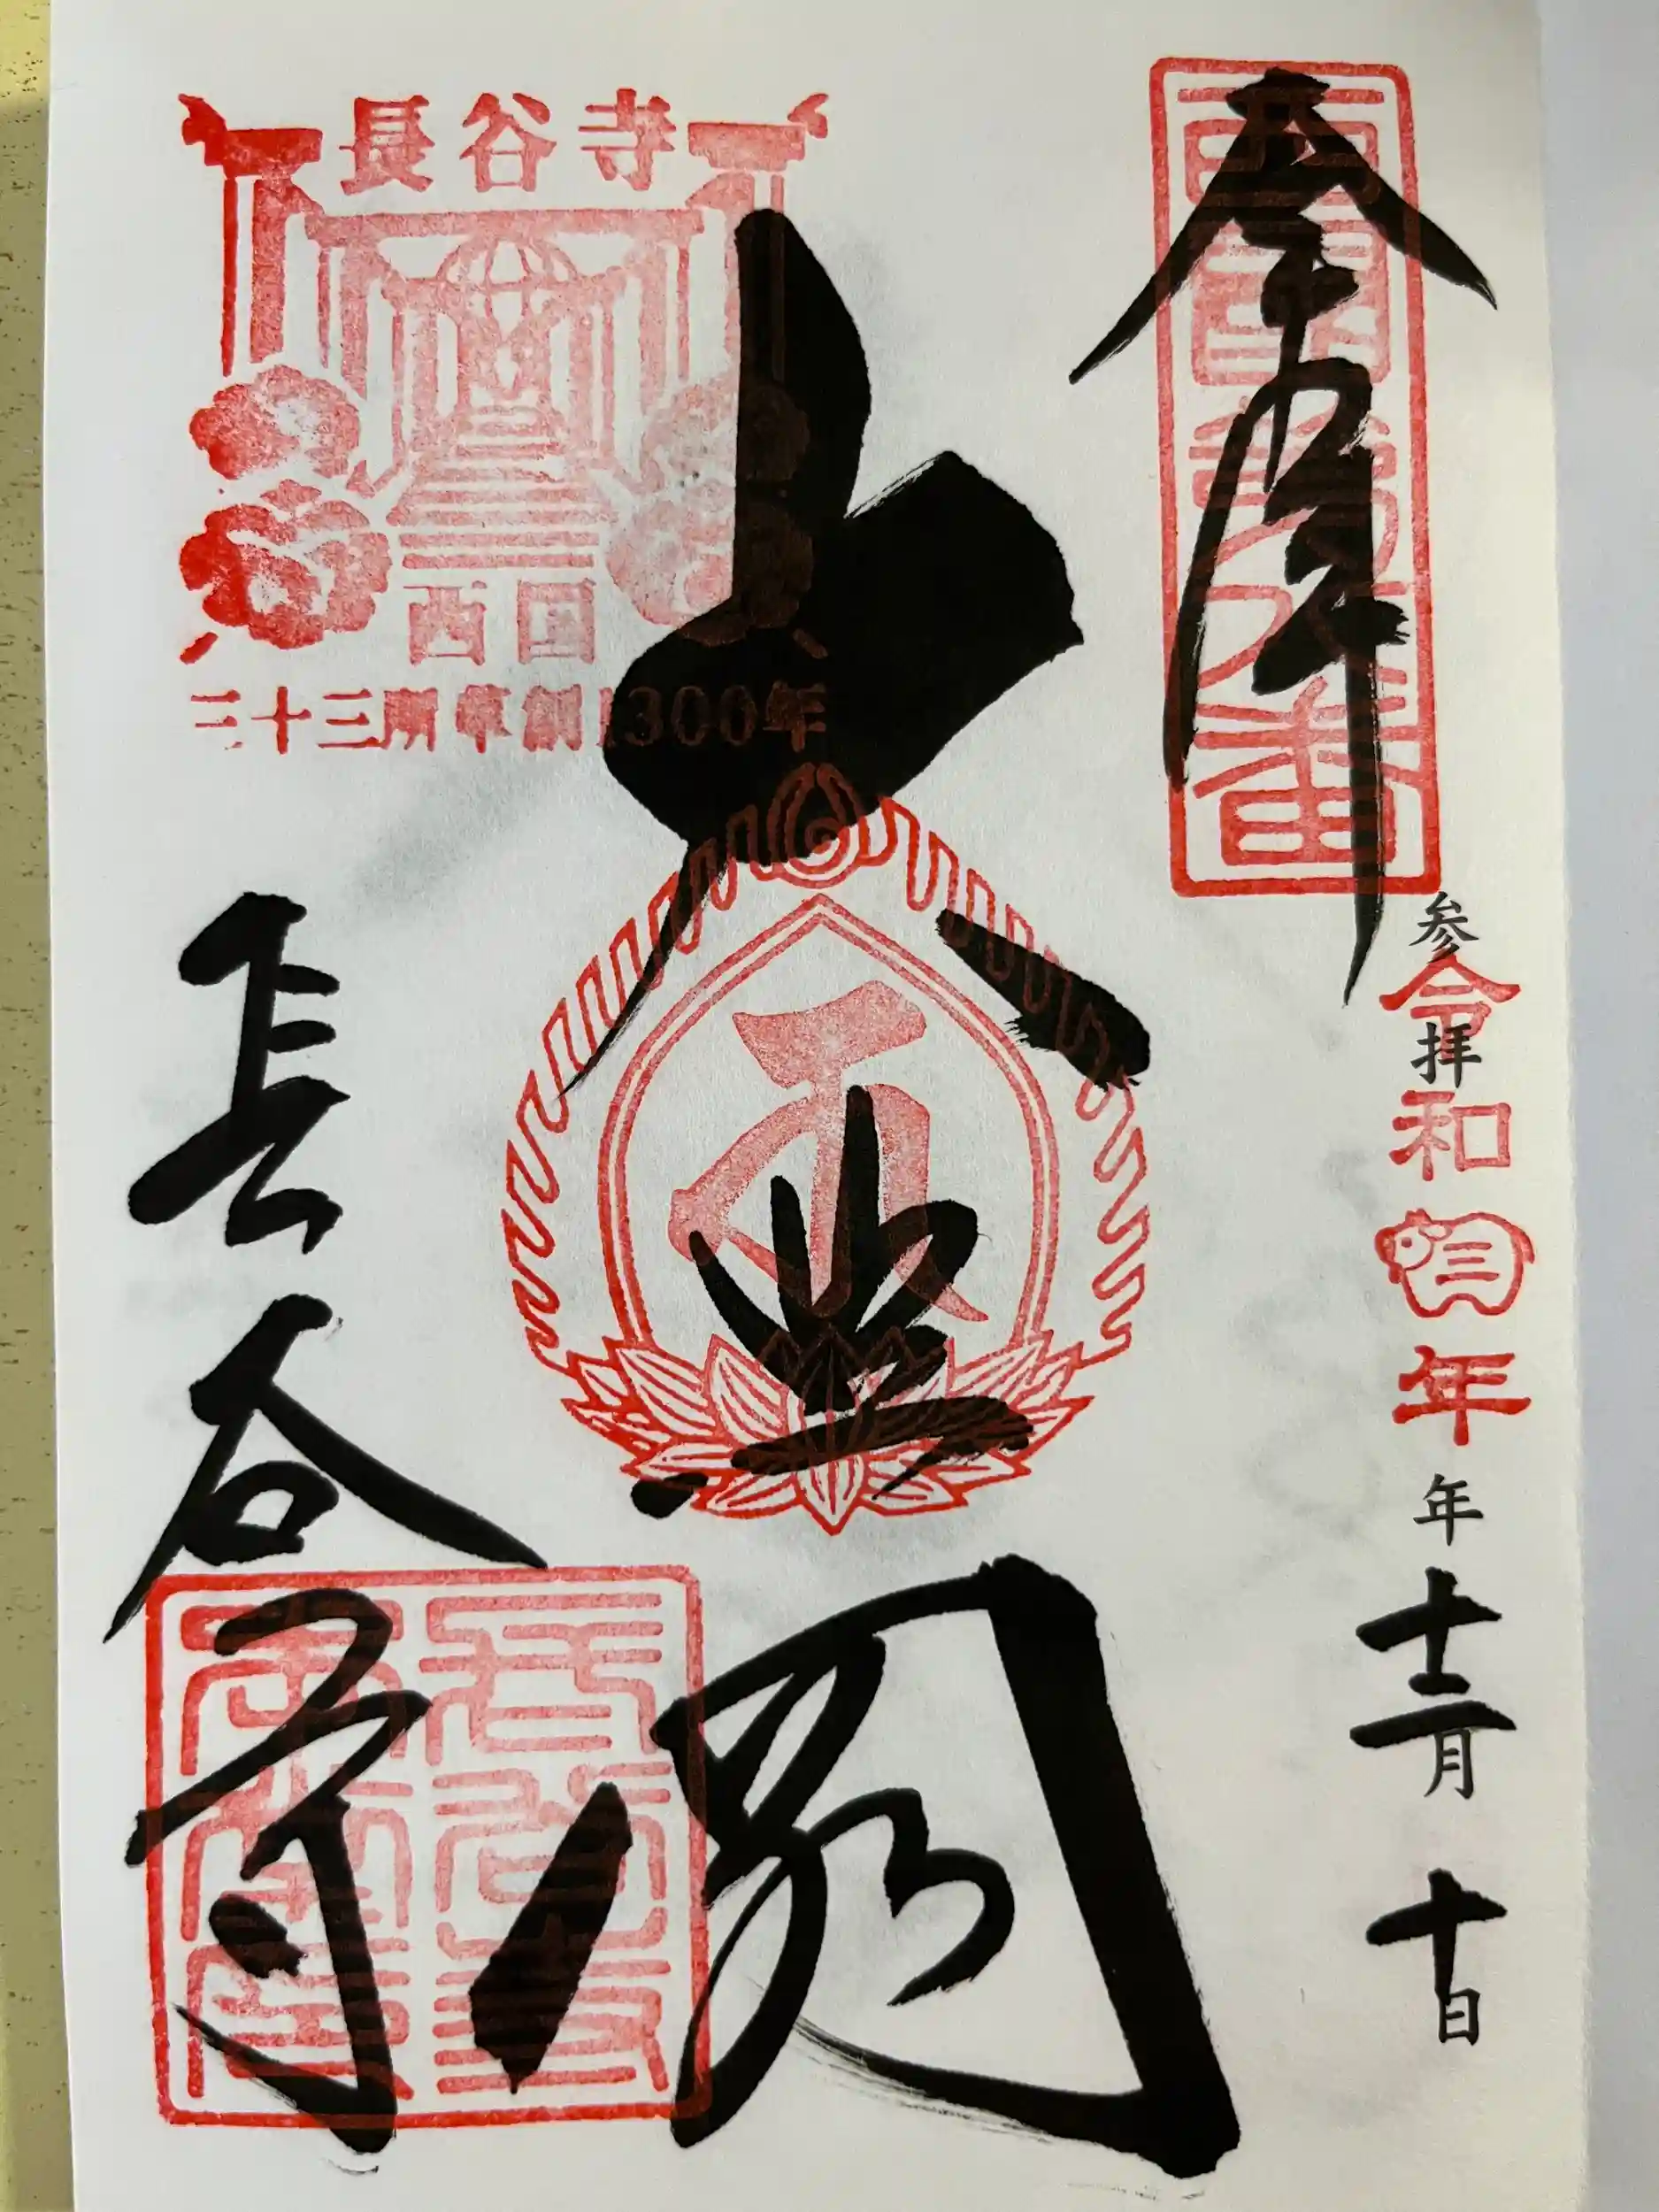 奉拝
西国第八番
参拝
令和三年
年十二月十日
大悲閣
長谷寺
長谷寺
西国
三十三所草創1300年